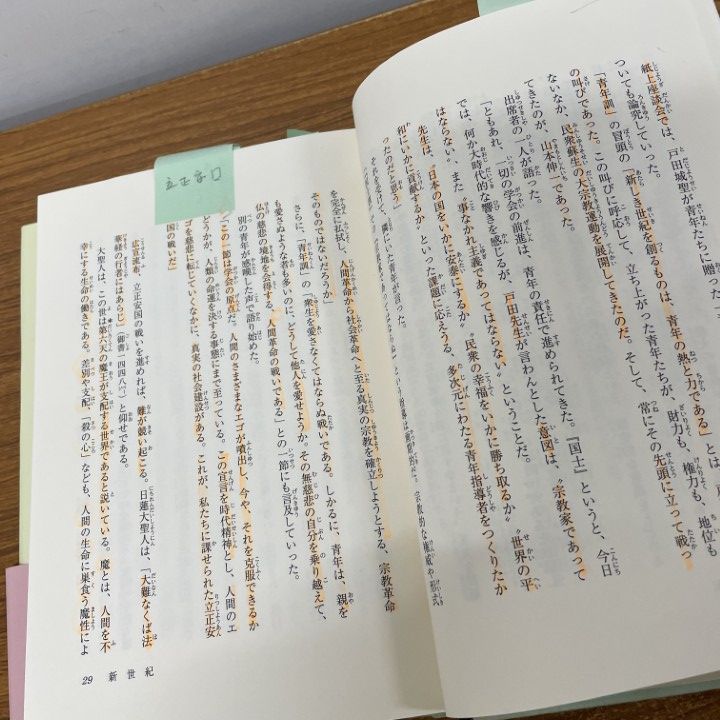 紙上座談会では、戸田城聖が青年たちに贈った
ついても論究していった。
「青年訓」の冒頭の「新しき世紀を創るものは、青年の熱と力である」とは
の叫びであった。この叫びに呼応して、立ち上がった青年たちが、財力も、権力も、地位も
ないなか、民衆蘇生の大宗教運動を展開してきたのだ。そして、常にその先頭に立って戦っ
てきたのが、山本伸一であった。
出席者の一人が語った。
「ともあれ、一切の学会の前進は、青年の責任で進められてきた。『国士』というと、今日
では、何か大時代的な響きを感じるが、戸田先生が言わんとした意図は、〝宗教家であって
はならない。また、事なかれ主義であってはならない〟ということだ。
先生は、〝日本の国をいかに安泰にするか〟〝民衆の幸福をいかに勝ち取るか〟〝世界の平
和にいかに貢献するか〟といった課題に応えうる、多次元にわたる青年指導者をつくりたか
ったのだと思う」
を完全に払拭し、人間革命から社会革命へと至る真実の宗教を確立しようとする、宗教革命
そのものではないだろうか」
さらに、「青年訓」の「衆生を愛さなくてはならぬ戦いである。しかるに、青年は、親を
も愛さぬような者も多いのに、どうして他人を愛せようか。その無慈悲の自分を乗り越えて、
仏の慈悲の境地を会得する、人間革命の戦いである」との一節にも言及していった。
別の青年が感嘆した声で語り始めた。
「この一節は学会の原点だ。人間のさまざまなエゴが噴出し、今や、それを克服できるか
どうかが、人類の命運を決する事態にまで至っている。この宣言を時代精神とし、人間のエ
ゴを慈悲に転じていくなかに、真実の社会建設がある。これが、私たちに課せられた立正安
国の戦いだ」
広宣流布、立正安国の戦いを進めれば、難が競い起こる。日蓮大聖人は、「大難なくば法
華経の行者にはあらじ」(御書一四四八㌻)と仰せである。
大聖人は、この世は第六天の魔王が支配する世界であると説いている。魔とは、人間を不
幸にする生命の働きである。差別や支配、「殺の心」なども、人間の生命に巣食う魔性によ
29 新世紀